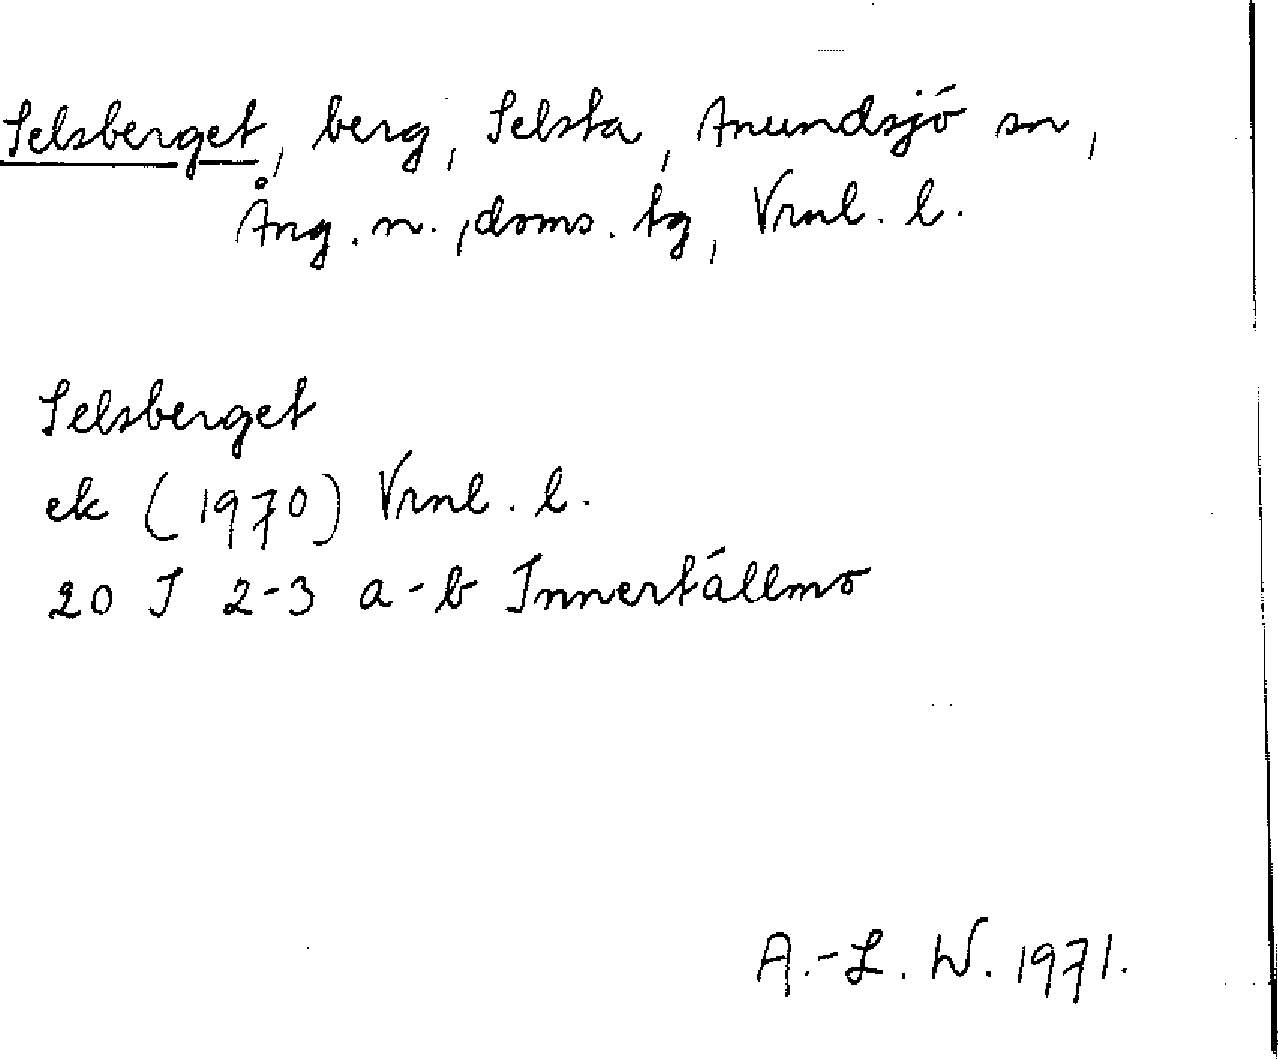 Selsberget, berg, Selsta, Anundsjö sn,
Ång. n. , doms. tg, Vrnl. l.
Selsberget
ek (1970) Vrnl. l.
20 I 2-3 a-b Innertällmo
A.-L. W. 1971.